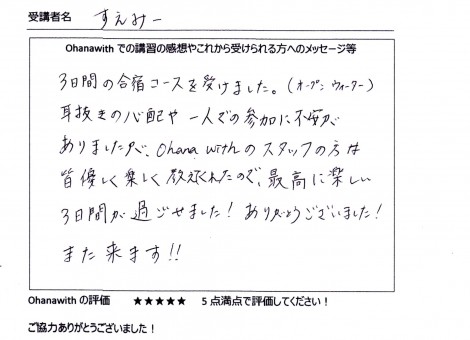 受講者名 すえみー
Ohanawith での講習の感想やこれから受けられる方へのメッセージ等
3日間の合宿コースを受けました。(オープンウォーター)
耳抜きの心配や一人での参加に不安が
ありましたが、Ohana withのスタッフの方は
皆優しく楽しく教えてくれたので、最高に楽しい
3日間が過ごせました! ありがとうございました!
また来ます!!
Ohanawith の評価 ★★★★★ 5 点満点で評価してください!
ご協力ありがとうございました!